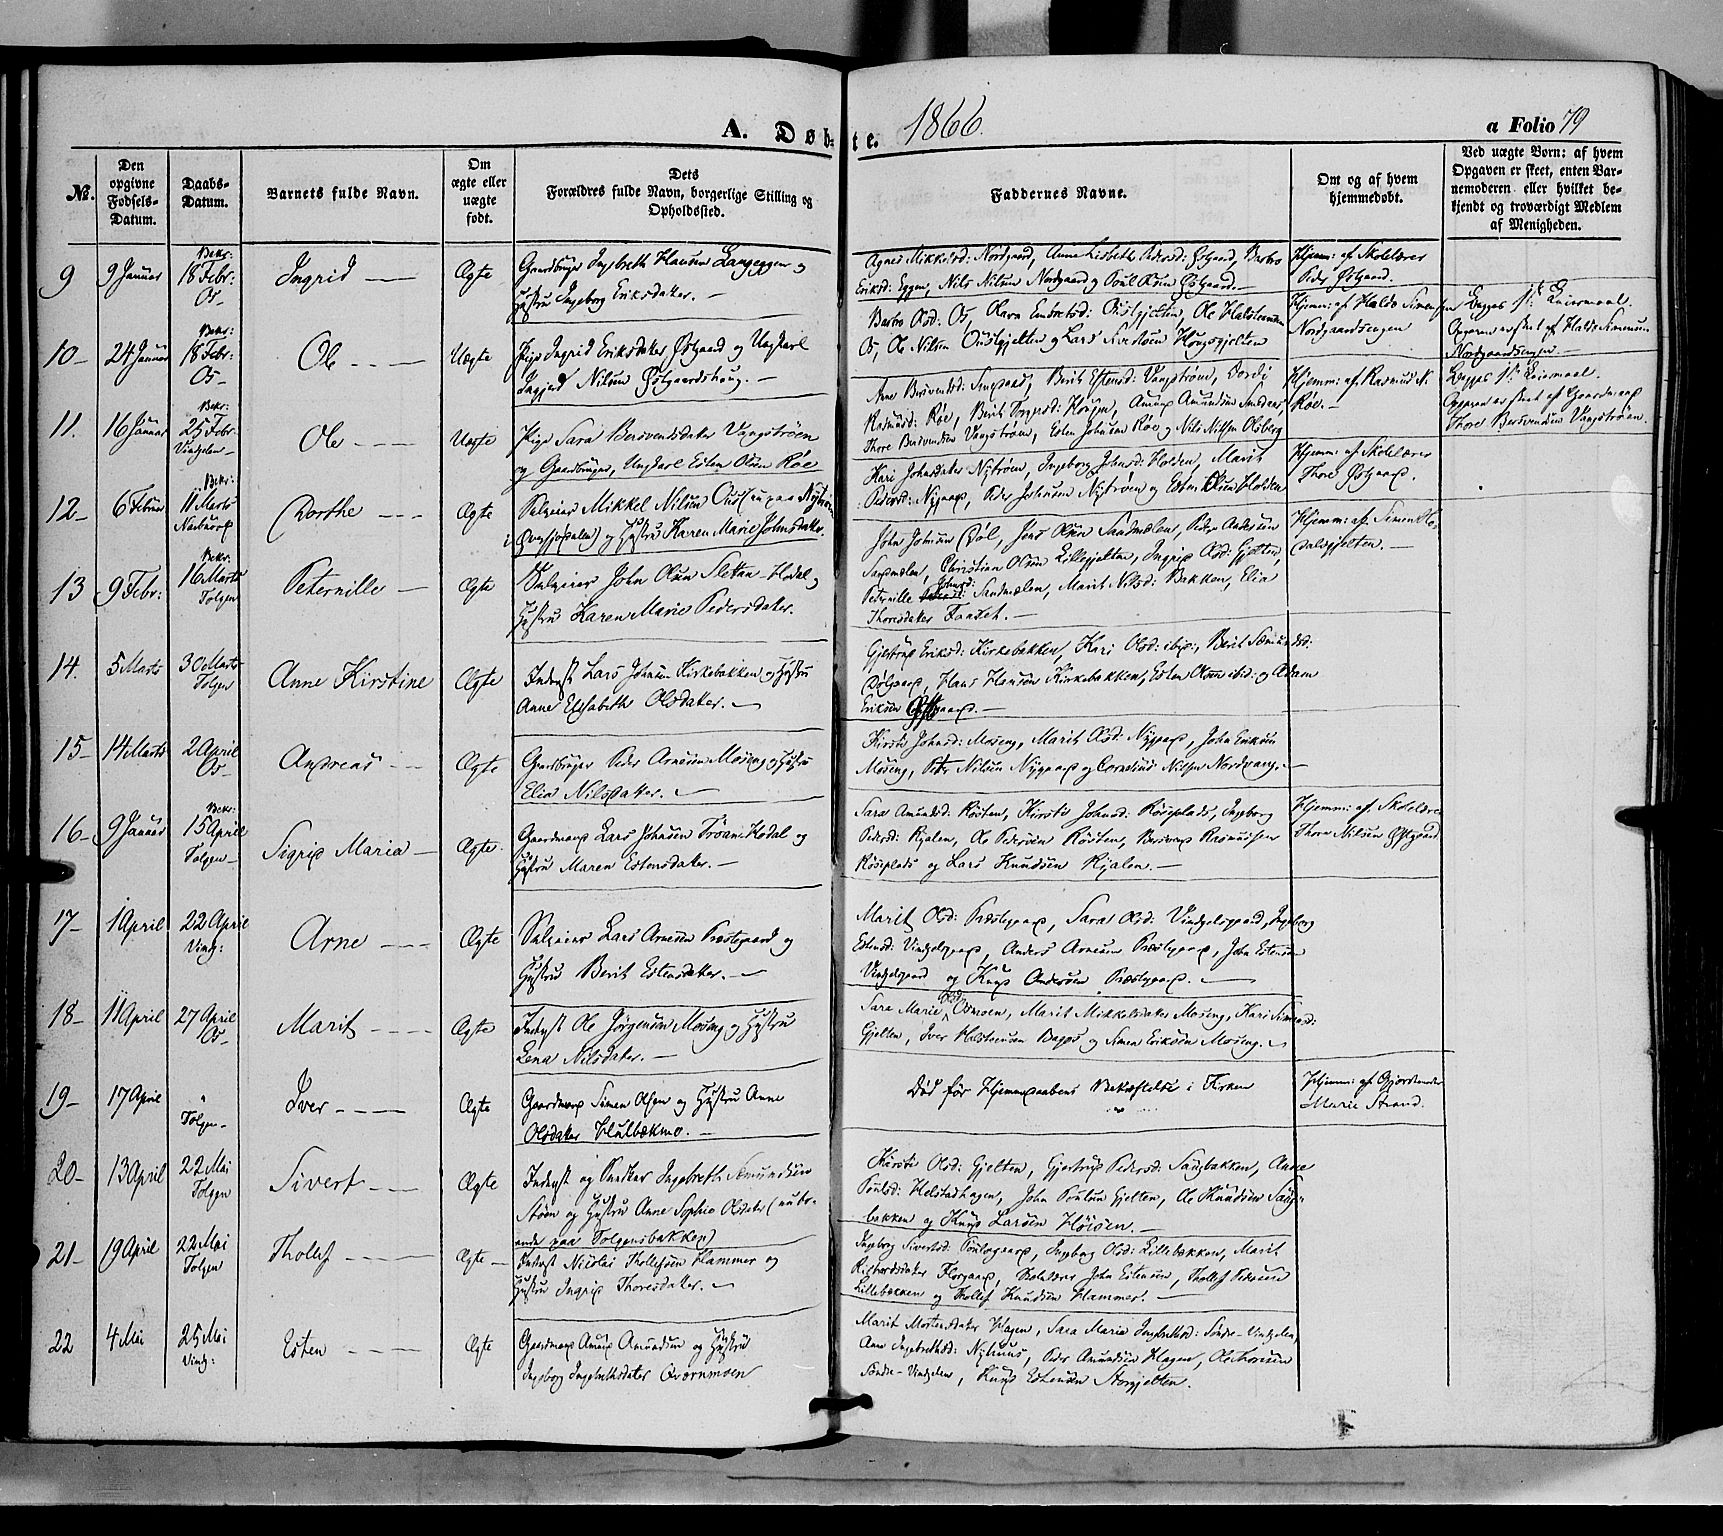 A. Døb-
te. 1866.
a Folio 79
No.
Den opgivne Fødsels-Datum.
Daabs-Datum.
Barnets fulde Navn.
Om ægte eller uægte født.
Dets Forældres fulde Navn, borgerlige Stilling og Opholdssted.
Faddernes Navne.
Om og af hvem hjemmedøbt.
Ved uægte Børn: af hvem Opgaven er skeet, enten Barnemoderen eller hvilket bekjendt og troværdigt Medlem af Menigheden.
9 9 Januar Bekr: 18 Febr: Os- Ingrid Ægte
Gaardbruger Ingebreth Hansen Langeggen og
Hustru Ingeborg Eriksdatter. —
Agnes Mikkelsd: Nordgaard, Anne Lisbeth Pedersd: Østgaard, Barbro
Eriksd: Eggen, Nils Nilsen Nordgaard og Poul Olsen Østgaard. —
Hjem: af Skolelærer
Peder Østgaard.
10- 24 Januar Bekr: 18 Febr: Os- Ole Uægte
Pige Ingrid Eriksdatter Østgaard og Ungkarl
Nilsen Østgaardshaug. —
Barbro Olsd: Os, Embretsd: Ousgjelten, Ole Halstensen
Os, Ole Nilsen Ousgjelten og Lars Siversen Hougsgjelten
Hjemm: af Haldo Simensen
Nordgaardsengen
Begges 1ste Leiermaal.
Opgaven er skeet af Haldo Simensen
Nordgaardsengen. —
11. 16 Januar Bekr: 25 Febr: Vingelen- Ole Uægte
Pige Sara Bersvendsdatter Vangstrøen
og Gaardbruger, Ungkarl Esten Olsen Røe
Berit Estensd: Vangstrøen, Dordi
Rasmusd: Røe, Amund Amundsen
Thore Bersvendsen Vangstrøen, Esten Johnsen Røe og Nils Nilsen Olsberg
Hjemm: af Rasmus N.
Røe. —
Begges 1ste Leiermaal.
Opgaven er skeet af Gaardmand
Thore Bersvendsen Vangstrøen.
12- 6 Februar Bekr: 11 Marts Dorthe Ægte
Selveier Mikkel Nilsen paa Nystrøen
og Hustru Karen Marie Johnsdatter.
Kari Johnsdatter Nystrøen, Ingeborg Johnsd: Holden, Marit
Pedersd: Nygaard, Peder Johnsen Nystrøen og Esten Olsen Holden
Hjemm: af Skolelærer
Thore Østgaard.
13 9 Febr: Bekr: 16 Marts Tolgen Peternille Ægte
Selveier John Olsen Sletten-Hodal og
Hustru Karen Marie Pedersdatter.
John Johnsen Døl, Jens Olsen Sandmælen, Peder Andersen
Sandmælen, Christian Olsen Lillegjelten, Ingrid Olsd: Gjelten,
Peternille Johnsd: Sandmælen, Marit Nilsd: Bakken, Elia
Thoresdatter Faaset. —
Hjemm: af Simen
Dalsgjelten. —
14. 5 Marts 30 Marts Tolgen Anne Kirstine Ægte
Inderst Lars Johnsen Kirkebakken og Hustru
Anne Elisabeth Olsdatter. —
Gjertrud Eriksd: Kirkebakken, Kari Olsd: ibid:, Berit Simensd:
Dølgaard, Hans Hansen Kirkebakken, Esten Olsen ibid: og Adam
Eriksen
15- 14 Marts 2 April Os- Andreas Ægte
Gaardbruger Peder Arnesen Moseng og Hustru
Elia Nilsdatter. —
Kirsti Johnsd: Moseng, Marit Olsd: Nygaard, John Eriksen
Moseng, Peter Nilsen Nygaard og Cornelius Nilsen Nordvang. —
16- 9 Januar Bekr: 15 April Tolgen- Sigrid Maria Ægte.
Gaardmand Lars Johnsen Troan-Hodal og
Hustru Maren Estensdatter. —
Sara Amundsd: Røsten, Kirsti Johnsd: Røseplads, Ingeborg
Pedersd: Kjølen, Ole Pedersen Røsten, Bersvend Rasmussen
Røseplads og Lars Knudsen Kjølen. —
Hjemm: af Skolelærer
Thore Nilsen Østgaard
17- 1 April 22 April Ving: Arne Ægte
Selveier Lars Arnesen Præstegaard og
Hustru Berit Estensdatter. —
Marit Olsd: Præstegaard, Sara Olsd: Vingelsgaard, Ingeborg
Estensd: Vingelsgaard, Anders Arnesen Præstegaard, John Estensen
Vingelsgaard og Knud Andersen Præstegaard. —
18- 11 April 27 April Os- Marit Ægte
Inderst Ole Jørgensen Moseng og Hustru
Lena Nilsdatter. —
Sara Marie Olsd: Osmoen, Marit Mikkelsdatter Moseng, Kari Simensd:
Gjelten, Iver Halstensen Bagos og Simen Eriksen Moseng. —
19- 17 April " Tolgen- Iver Ægte
Gaardmand Simen Olsen og Hustru Anne
Olsdatter Hulbækmo. —
Død før Hjemmedaabens Bekræftelse i Kirken
Hjemm: af Gjordemoder
Marie Strand.
20- 13 April 22 Mai Tolgen Sivert Ægte
Inderst og Snedker Ingebreth Simundsen
Støen og Hustru Anne Sophie Olsdatter
paa Tolgensbakken)
Kirsti Olsd: Gjelten, Gjertrud Pedersd: Saugbakken, Anne
Poulsd: Helstadhagen, John Poulsen Gjelten, Ole Knudsen Saug-
bakken og Knud Larsen Høisen. —
21- 19 April 22 Mai Tolgen Thollef Ægte
Inderst Nicolai Thollefsen Hammer og
Hustru Ingrid Thoresdatter. —
Ingeborg Sivertsd: Ingeborg Olsd: Lillebakken, Marit
Skolelærer John Estensen, Thollef Pedersen
Lillebakken og Thollef Knudsen Hammer. —
22 4 Mai 25 Mai Ving: Esten Ægte
Gaardmand Amund Amundsen og Hustru
Ingeborg Ingebrethsdatter Qværnmoen
Marit Mortensdatter Hagen, Sara Maria Ingebrethsd: Søndre-Vingelen,
Ane Ingebrethsd: Nyhuus, Peder Amundsen Hagen, Ole Thoresen
Søndre-Vingelen, Knud Estensen Storgjelten.